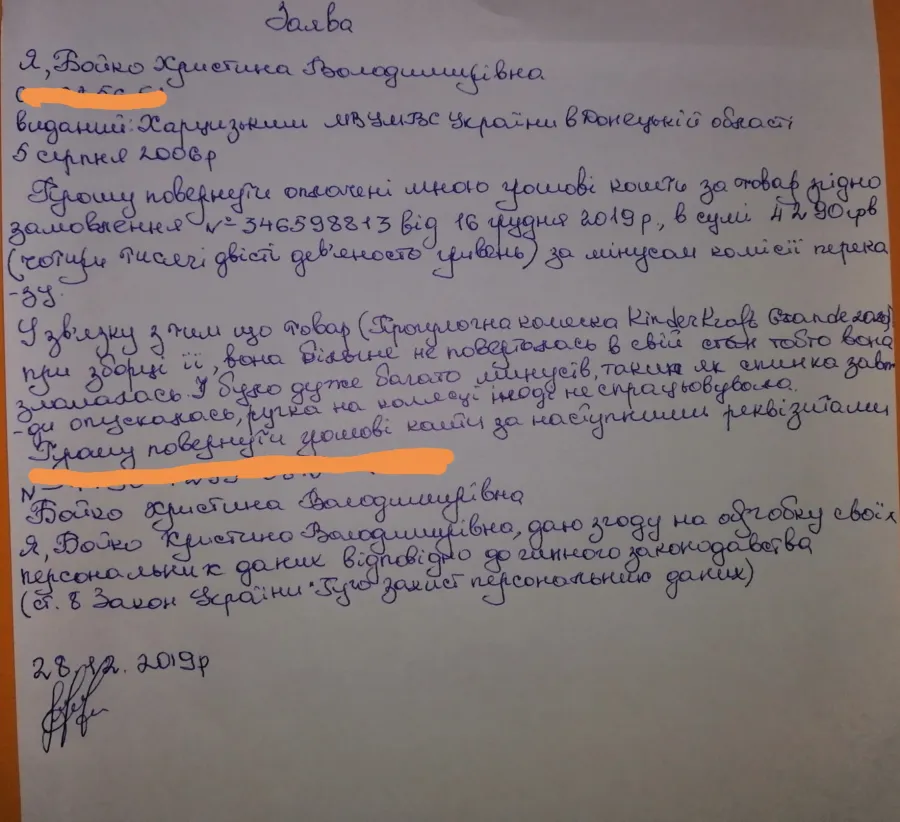 Заява
Я, Бойко Христина Володимирівна
виданий: Харцизьким МВУМВС України в Донецькій області
5 серпня 2006р
Прошу повернути оплачені мною грошові кошти за товар згідно
замовлення №346598813 від 16 грудня 2019р, в сумі 4290грв
(чотири тисячі двісті дев'яносто гривень) за мінусом комісії перека
-зу.
У зв'язку з тим що товар (Прогулочна коляска KinderKraft Grande
при зборці її, вона більше не поверталась в свій стан тобто вона
зламалась. І було дуже багато мінусів, таких як спинка завж
-ди опускалась, ручка на колясці іноді не спрацьовувала.
Прошу повернути грошові кошти за наступними реквізитами
Бойко Христина Володимирівна
Я, Бойко Христина Володимирівна, даю згоду на обробку своїх
персональних даних відповідно до законодавства
(ст. 8 Закон України "Про захист персональних даних)
28.12.2019р